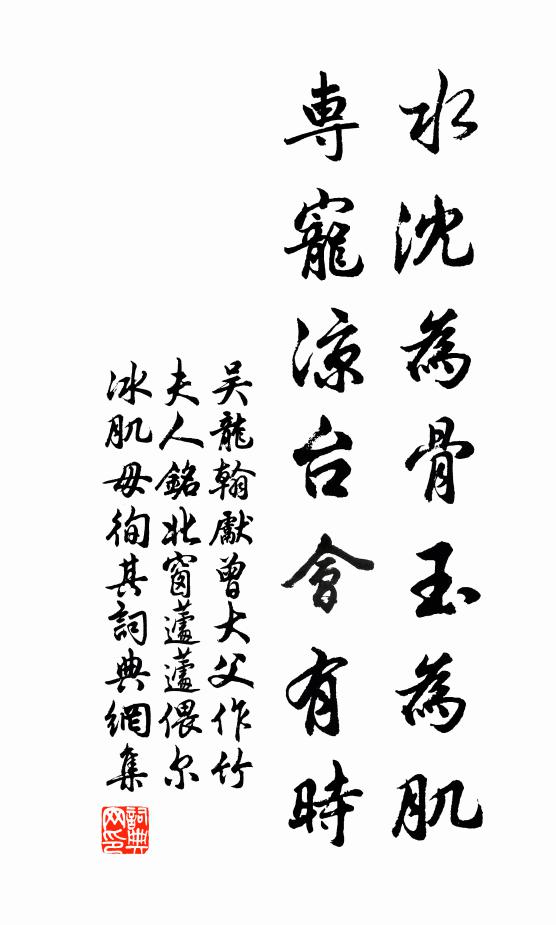 水沈為骨玉為肌
専寵涼台會有時
吴龍翰獻曾大父作竹
夫人銘北窗蘧蘧偎尔
冰肌毋徇其詞典網集
詞典网印